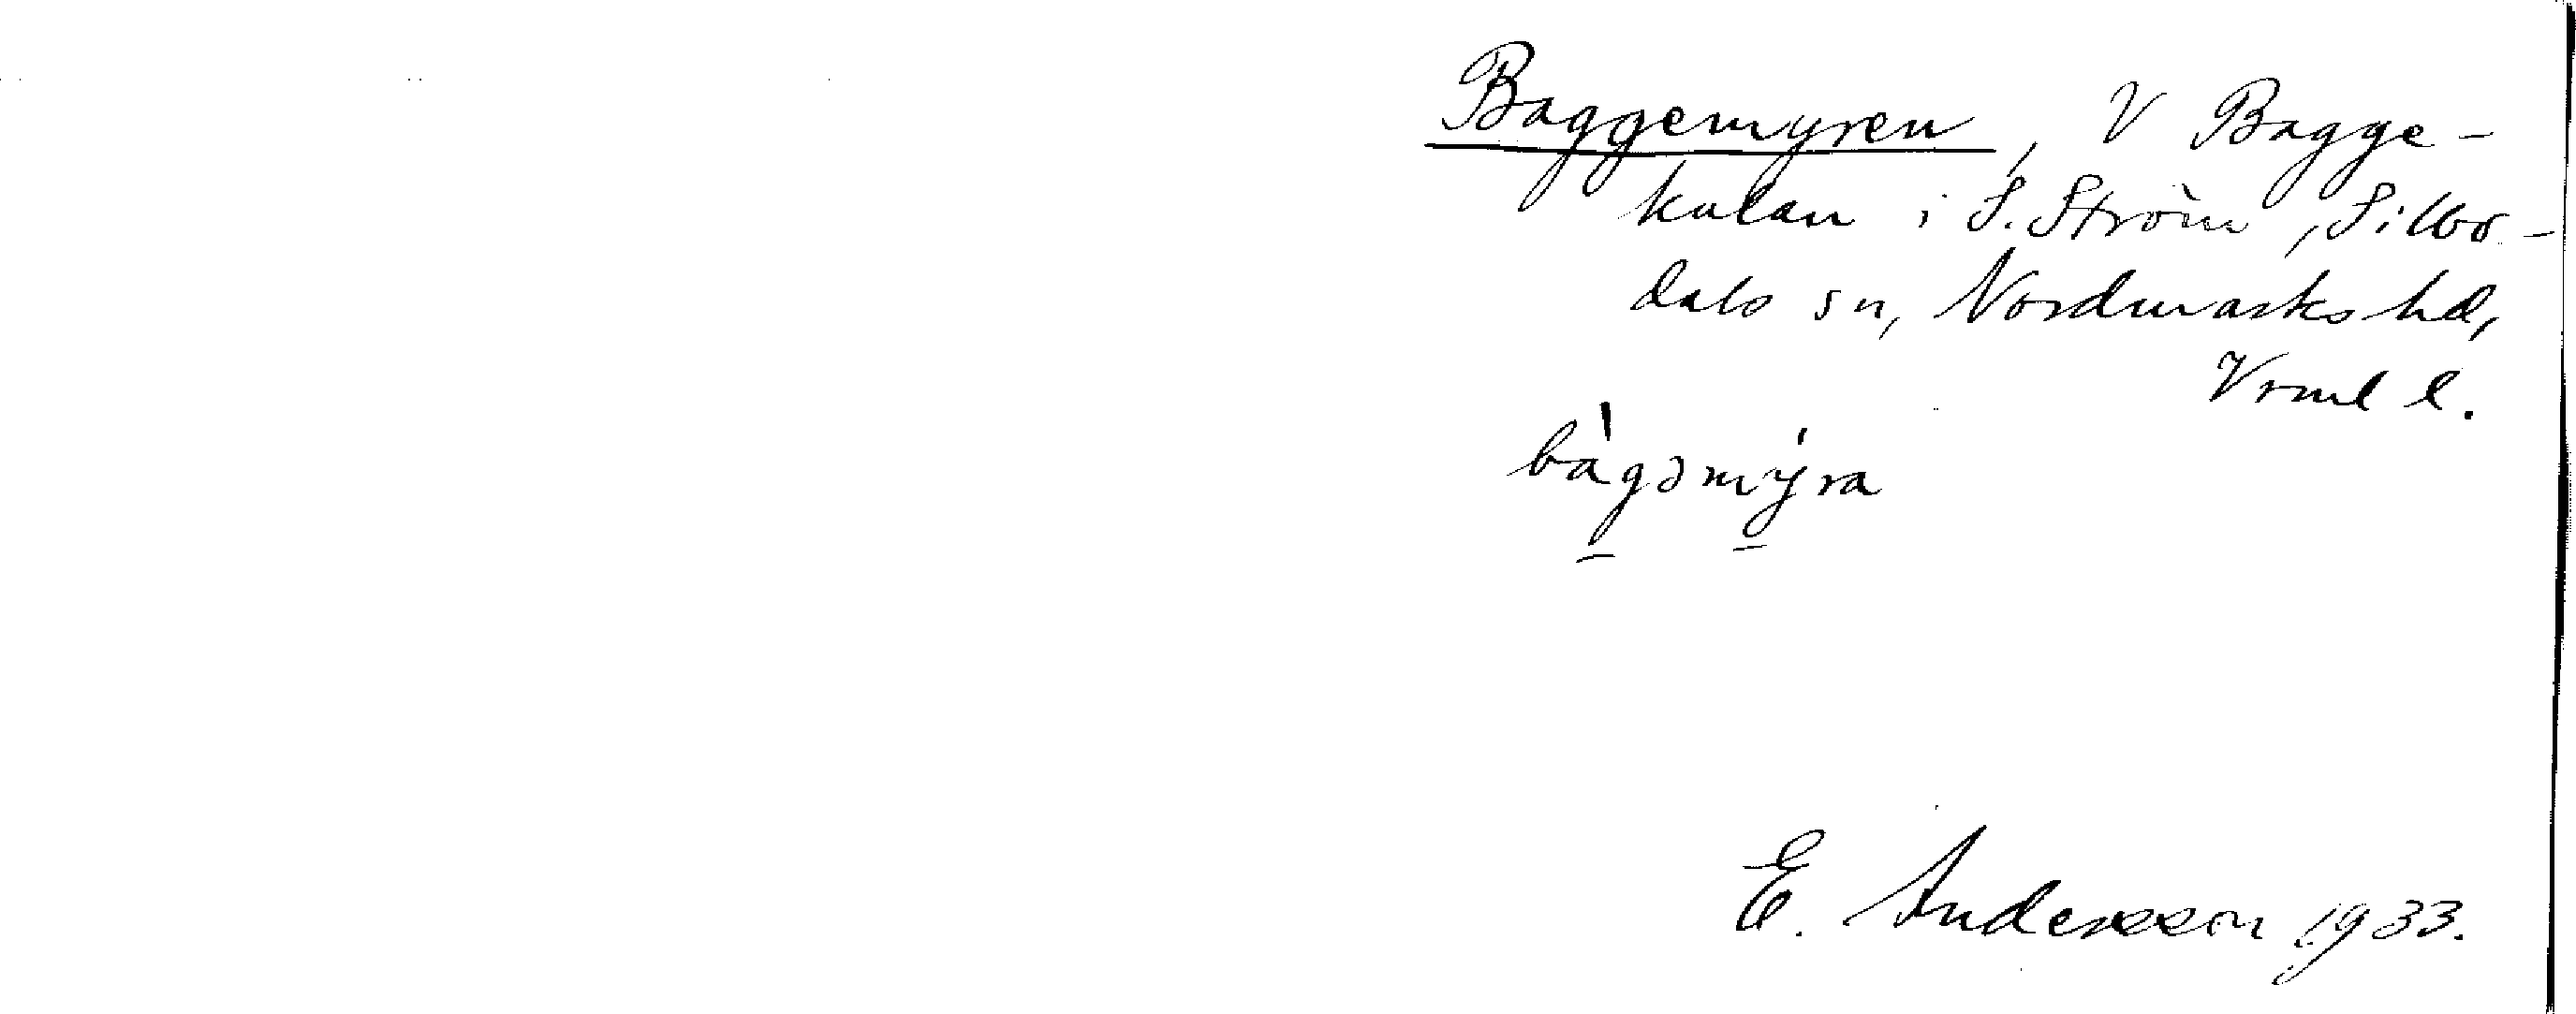 Baggemyren, V Bagge-
kulan i S. Ström, Silbo-
dals sn, Nordmarks hd,
Vrml l.
bàgəmýra
E. Andersson 1933.